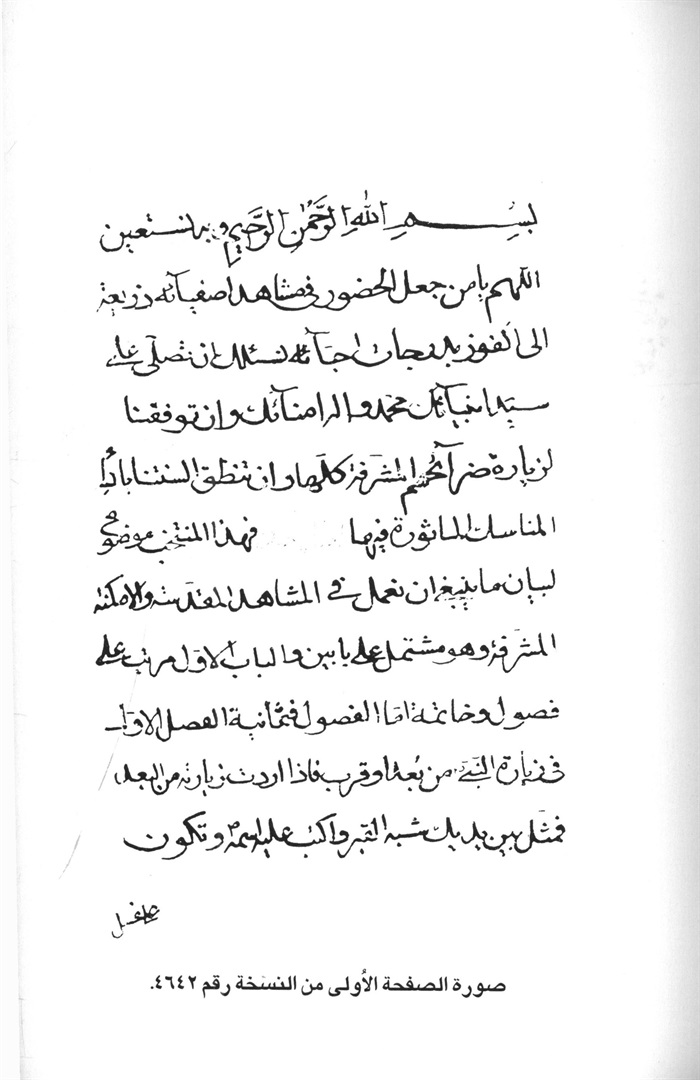 بِسْمِ اللهِ الرَّحْمٰنِ الرَّحِيمِ وبه نستعين
اللهم يا من جعل الحضور فى مشاهد اصفيائه ذريعة
الى الفوز بدرجات احبائه نسئلك ان تصلّى على
سيد انبيائك محمد واله امنائك وان توفقنا
لزيارة ضرائحهم المشرفة كلها وان تنطق السنتنا باداء
المناسك الماثورة فيها فهذا المنتخب موضوع
لبيان ما ينبغى ان نعمل فى المشاهد المقدسة والامكنة
المشرفة وهو مشتمل على بابين والباب الاول مرتب على
فصول وخاتمة امّا الفصول فثمانية الفصل الاول
فى زيارة النبى من بعد او قرب فاذا اردت زيارته من البعد
فمثّل بين يديك شبه القبر واكتب عليه اسمه وتكون
على غسل
صورة الصفحة الأولى من النسخة رقم ٤٦٤٢.